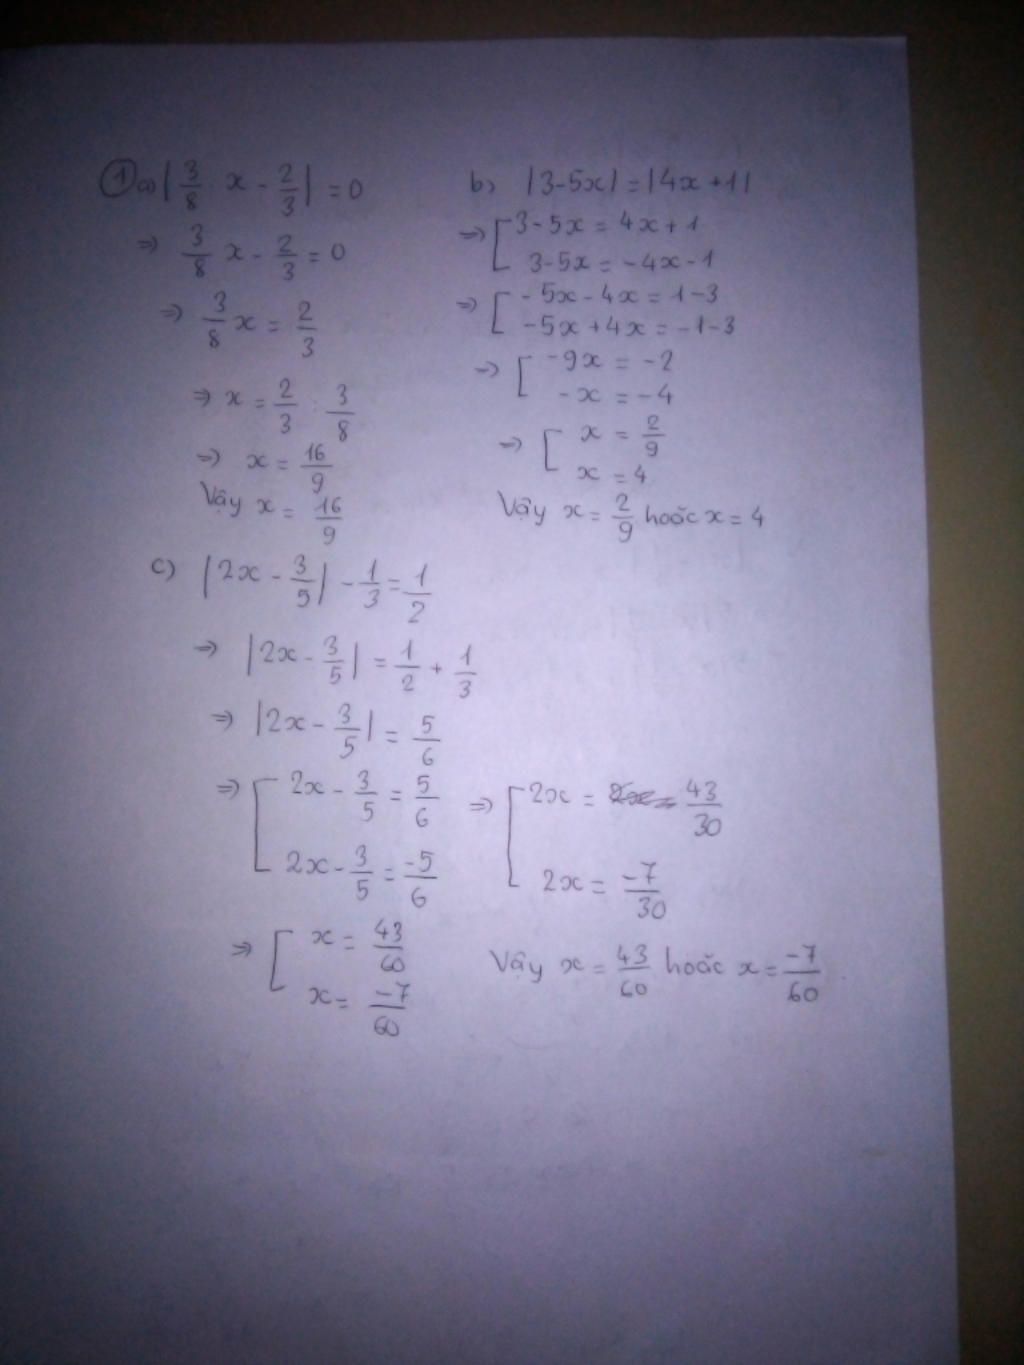 ① a) | 3/8 x - 2/3 | = 0
⇒ 3/8 x - 2/3 = 0
⇒ 3/8 x = 2/3
⇒ x = 2/3 : 3/8
⇒ x = 16/9
Vậy x = 16/9
b) |3-5x| = |4x+1|
⇒ [ 3-5x = 4x+1
3-5x = -4x-1
⇒ [ -5x-4x = 1-3
-5x+4x = -1-3
⇒ [ -9x = -2
-x = -4
⇒ [ x = 2/9
x = 4
Vậy x = 2/9 hoặc x = 4
c) | 2x - 3/5 | - 1/3 = 1/2
⇒ | 2x - 3/5 | = 1/2 + 1/3
⇒ | 2x - 3/5 | = 5/6
⇒ [ 2x - 3/5 = 5/6
2x - 3/5 = -5/6
⇒ [ 2x = 43/30
2x = -7/30
⇒ [ x = 43/60
x = -7/60
Vậy x = 43/60 hoặc x = -7/60